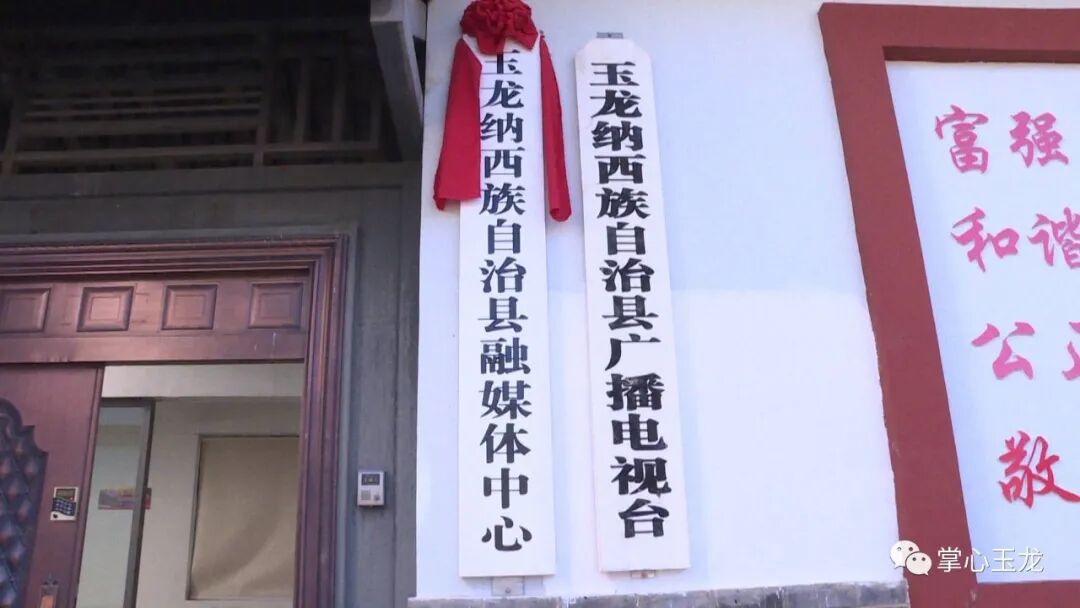 玉龙纳西族自治县融媒体中心
玉龙纳西族自治县广播电视台
富强
和谐
公正
敬
掌心玉龙